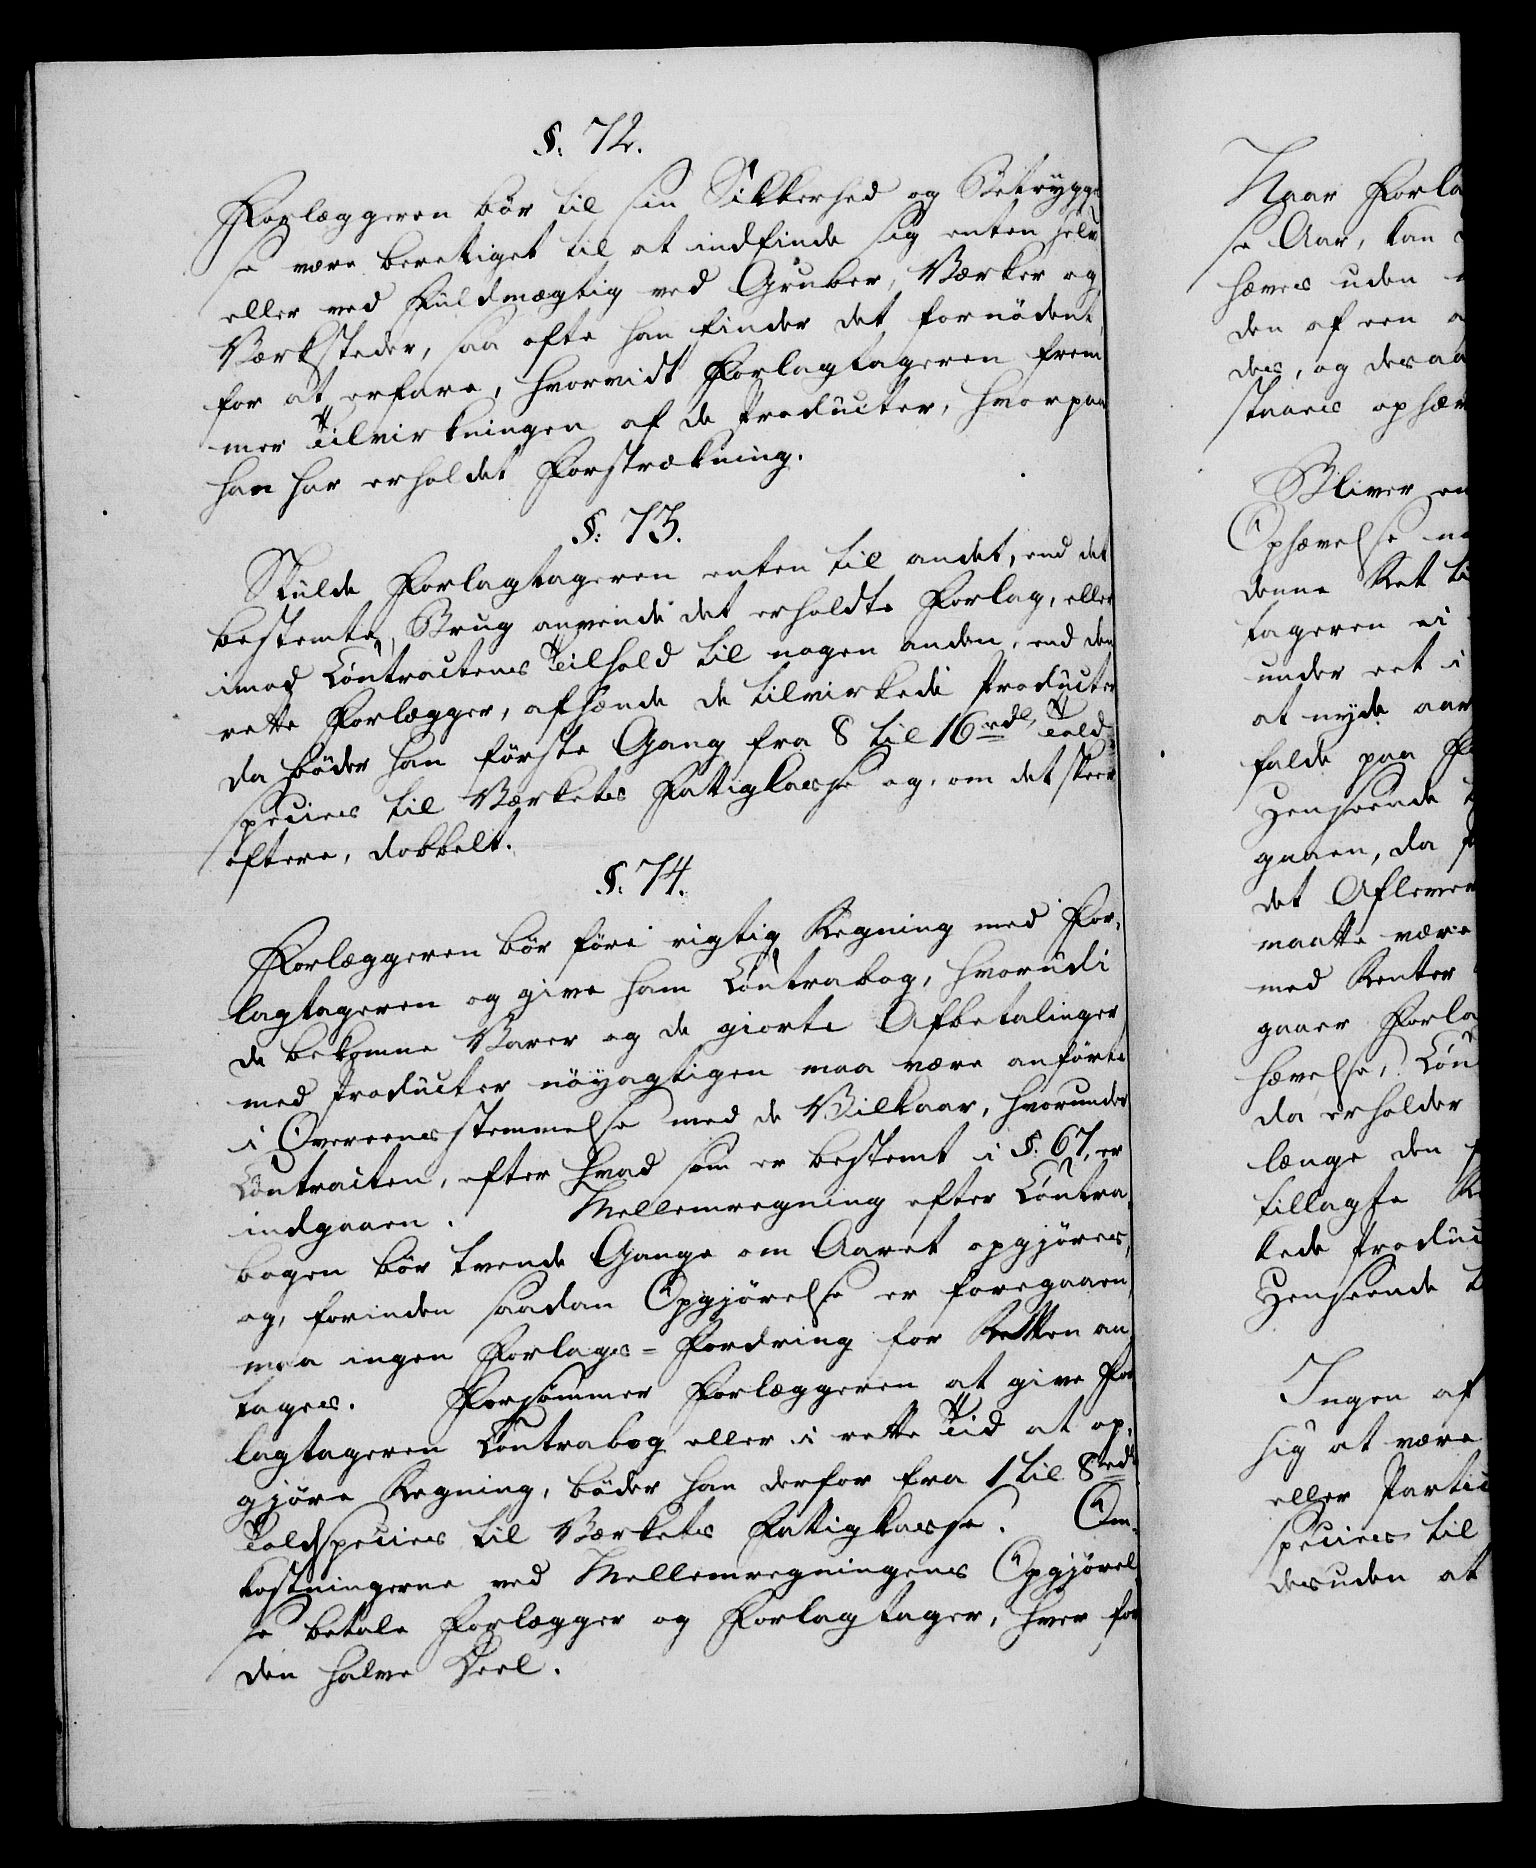 §. 72.
Forlæggeren bör til sin Sikkerhed og Betrygge
se være berettiget til at indfinde sig enten selv
eller ved Fuldmægtig ved Gruber, Værker og
Værksteder, saa ofte han finder det fornödent,
for at erfare, hvorvidt Forlagtageren frem
mer Tilvirkningen af de Producter, hvorpaa
han har erholdet Forstrækning.
§. 73.
Skulde Forlagtageren enten til andet, end det
bestemte, Brug anvende det erholdte Forlag, eller
imod Contractens Tilhold til nogen anden, end den
rette Forlægger, afhænde de tilvirkede Producter
da böder han förste Gang fra 8 til 16 rdl. Told-
species til Værkets Fattigkasse og, om det skeer
oftere, dobbelt.
§. 74.
Forlæggeren bör före rigtig Regning med For-
lagtageren og give ham Contrabog, hvorudi
de bekomne Varer og de giorte Afbetalinger
med Producter nöyagtigen maa være anförte
i Overeensstemmelse med de Vilkaar, hvorunder
Contracten, efter hvad som er bestemt i §. 67, er
indgaaen. Mellemregning efter Contra-
bogen bör tvende Gange om Aaret opgjöres,
og, forinden saadan Opgjörelse er foregaaen,
maa ingen Forlags-Fordring for Retten an-
tages. Forsömmer Forlæggeren at give For
lagtageren Contrabog eller i rette Tid at op-
gjöre Regning, böder han derfor fra 1 til 8 rdl
Toldspecies til Værkets Fattigkasse. Om-
kostningerne ved Mellemregningens Opgjörel
se betale Forlægger og Forlagtager, hver for
den halve Deel.
Naar Forla
se Aar, kan
hæves uden
den af een
des, og des aa
staaes ophæv
Bliver en
Ophævelse
denne Ret ti
tageren ei
under eet i
at nyde aar
falde paa
Henseende
gaaen, da
det Aflever
maatte være
med Renter
gaaer Forla
hævelse, Con
da erholder
længe den
tillagte
kede Produc
Henseende
Ingen af
sig at være
eller Partic
species til
desuden at